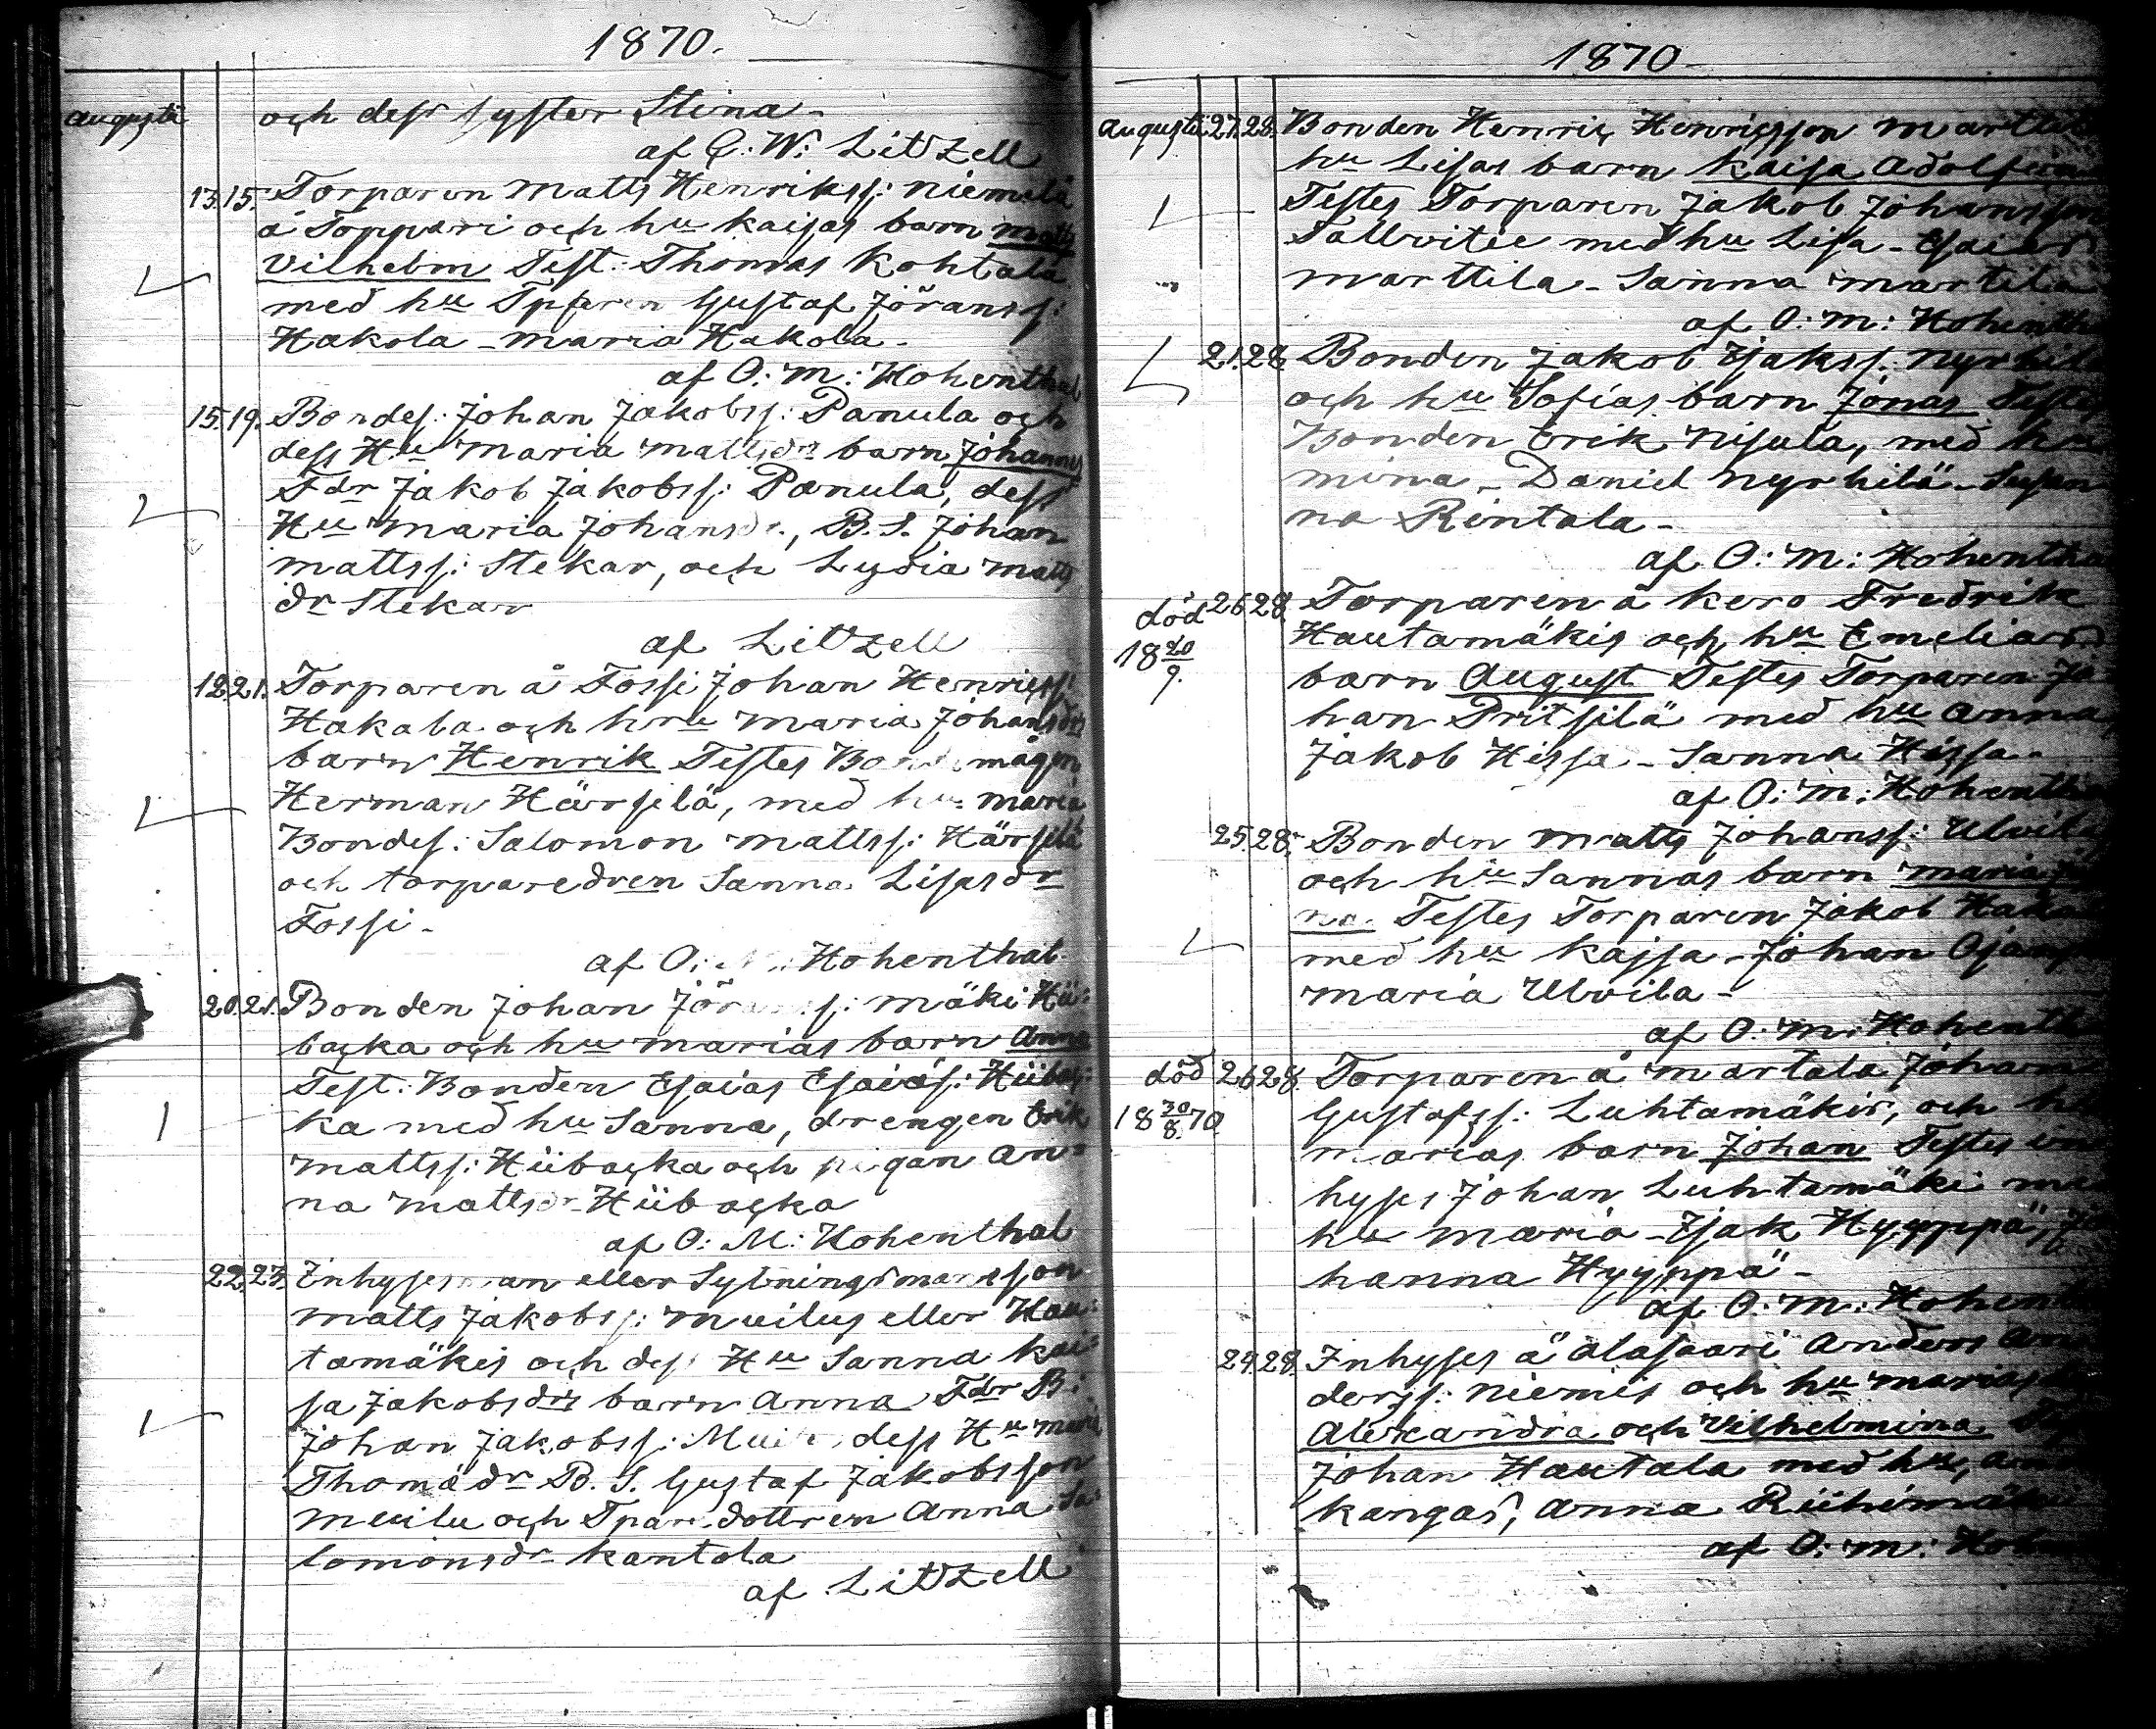 1870.
augusti
och dess syster Stina -
af C: W: Litzell
13. 15. Torparen Matts Henrikss: Niemelä
å Toppari och hu Kaisas barn Matts
Vilhelm Test: Thomas Kohtala
med hu Tpparen Gustaf Jöranss:
Hakola - Maria Hakola -
af O: M: Hohenthal
15. 19. Bondes: Johan Jakobss: Panula och
dess Hu Maria Mattsdrs barn Johannes
Fdr Jakob Jakobss: Panula, dess
Hu Maria Johansdr., B. S. Johan
Mattss: Stekar, och Lydia Matts
dr Stekar
af Litzell
12. 21. Torparen å Fossi Johan Henrikss:
Hakala och hru Maria Johansdrs
barn Henrik Testes Bondemågen
Herman Härsilä, med hu Maria
Bondes: Salomon Mattss: Härsilä
och torparedren Sanna Lisasdr
Fossi -
af O: M: Hohenthal
20. 21. Bonden Johan Jöranss: Mäki Hii=
backa och hu Marias barn Anna
Test: Bonden Esaias Esaiass: Hiibac:
ka med hu Sanna, drengen Erik
Mattss: Hiibacka och pigan An=
na Mattsdr Hiibacka
af O: M: Hohenthal
22. 27. Inhysesman eller Sytningsmansson
Matts Jakobss: Muilus eller Hau:
tamäkis och dess Hu Sanna Kai:
sa Jakobsdrs barn Anna Fdr B:
Johan Jakobss: Muilu, dess Hu Maria
Thomädr B. S. Gustaf Jakobsson
Muilu och Tparedottren Anna Sa:
lomonsdr Kantola
af Litzell
1870 -
Augusti 27. 28. Bonden Henric Henricsson
hu Lisas barn Kaisa
Testes Torparen Jakob Johansson
Tallvitie med hu Lisa - Esaias
Marttila - Sanna Martila
af O: M:
21. 28. Bonden Jakob Isakss:
och hu Sofias barn Jonas Testes
Bonden Erik Nisula, med hu
Mina - Daniel Nyrhilä - Susan
na Rintala -
af O: M:
död 26 28. Torparen å Kero Fredrik
18 20/9. Hautamäkis och hu Emelias
barn August Testes Torparen Jo
han Pritsilä med hu Anna
Jakob Hissa - Sanna Hissa -
af O: M:
25. 28. Bonden Matts Johanss:
och hu Sannas barn Maria
na. Testes Torparen Jakob
med hu Kajsa - Johan
Maria Ulvila -
af O: M:
död 26 28. Torparen å Martala Johan
18 30/8. 70. Gustafss: Luhtamäkis, och
Marias barn Johan Testes in
hyses Johan Luhtamäki
hu Maria - Isak Hyyppä,
hanna Hyyppä -
af O: M:
24. 28. Inhyses å Alasaari Anders An
derss: Niemis och hu Marias
Alexandra och Vilhelmina
Johan Hautala med hu,
Kangas, Anna Riihimäki
af O: M: